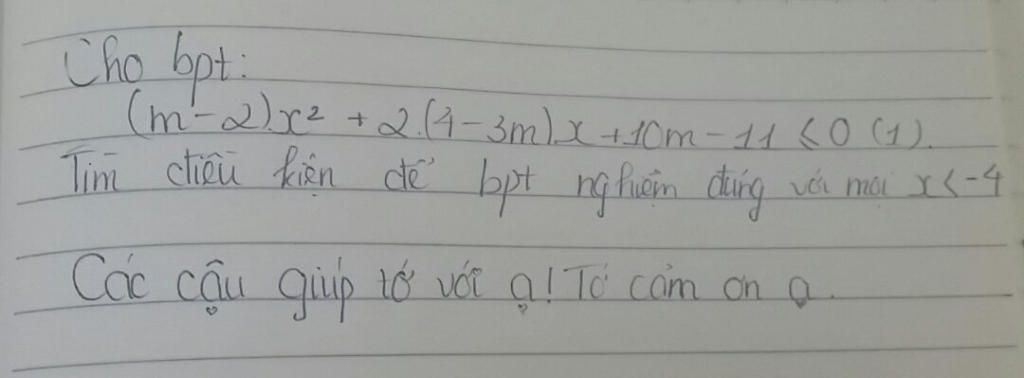 Cho bpt:
(m-2).x² + 2.(4-3m).x + 10m - 11 ≤ 0 (1).
Tìm điều kiện để bpt nghiệm đúng với mọi x < -4
Các cậu giúp tớ với ạ! Tớ cảm ơn ạ.